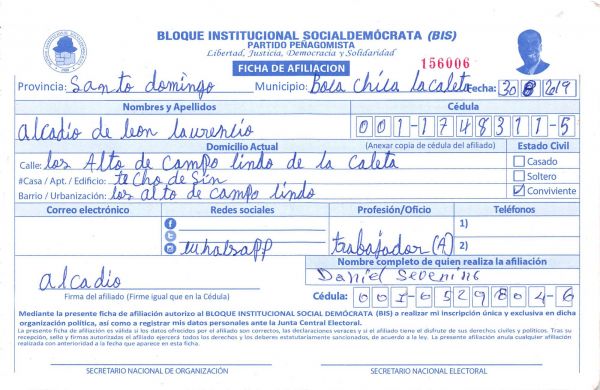 BLOQUE INSTITUCIONAL SOCIALDEMÓCRATA (BIS)
PARTIDO PEÑAGOMISTA
Libertad, Justicia, Democracia y Solidaridad
FICHA DE AFILIACION
156006
Provincia: Santo domingo Municipio: Boca chica la caleta Fecha: 30 8 2019
Nombres y Apellidos Cédula
alcadio de leon laurencio 001-1748311-5
Domicilio Actual (Anexar copia de cédula del afiliado) Estado Civil
Calle: los Alto de campo lindo de la caleta Casado
#Casa / Apt. / Edificio: techo de Sin Soltero
Barrio / Urbanización: los alto de campo lindo Conviviente
Correo electrónico Redes sociales Profesión/Oficio Teléfonos
1)
whalsapp trabajador (A) 2)
Nombre completo de quien realiza la afiliación
alcadio Daniel Severino
Firma del afiliado (Firme igual que en la Cédula) Cédula: 001-0529804-6
Mediante la presente ficha de afiliación autorizo al BLOQUE INSTITUCIONAL SOCIAL DEMÓCRATA (BIS) a realizar mi inscripción única y exclusiva en dicha
organización política, así como a registrar mis datos personales ante la Junta Central Electoral.
La presente ficha de afiliación es válida si los datos ofrecidos por el afiliado son correctos, las declaraciones veraces y si el afiliado tiene el disfrute de sus derechos civiles y políticos. Tras su
recepción, sello y firmas autorizadas el afiliado ejercerá todos los derechos y los deberes estatutariamente sancionados, de acuerdo a la ley. La presente afiliación anula cualquier afiliación
realizada con anterioridad a la fecha que aparece en esta ficha.
SECRETARIO NACIONAL DE ORGANIZACIÓN SECRETARIO NACIONAL ELECTORAL